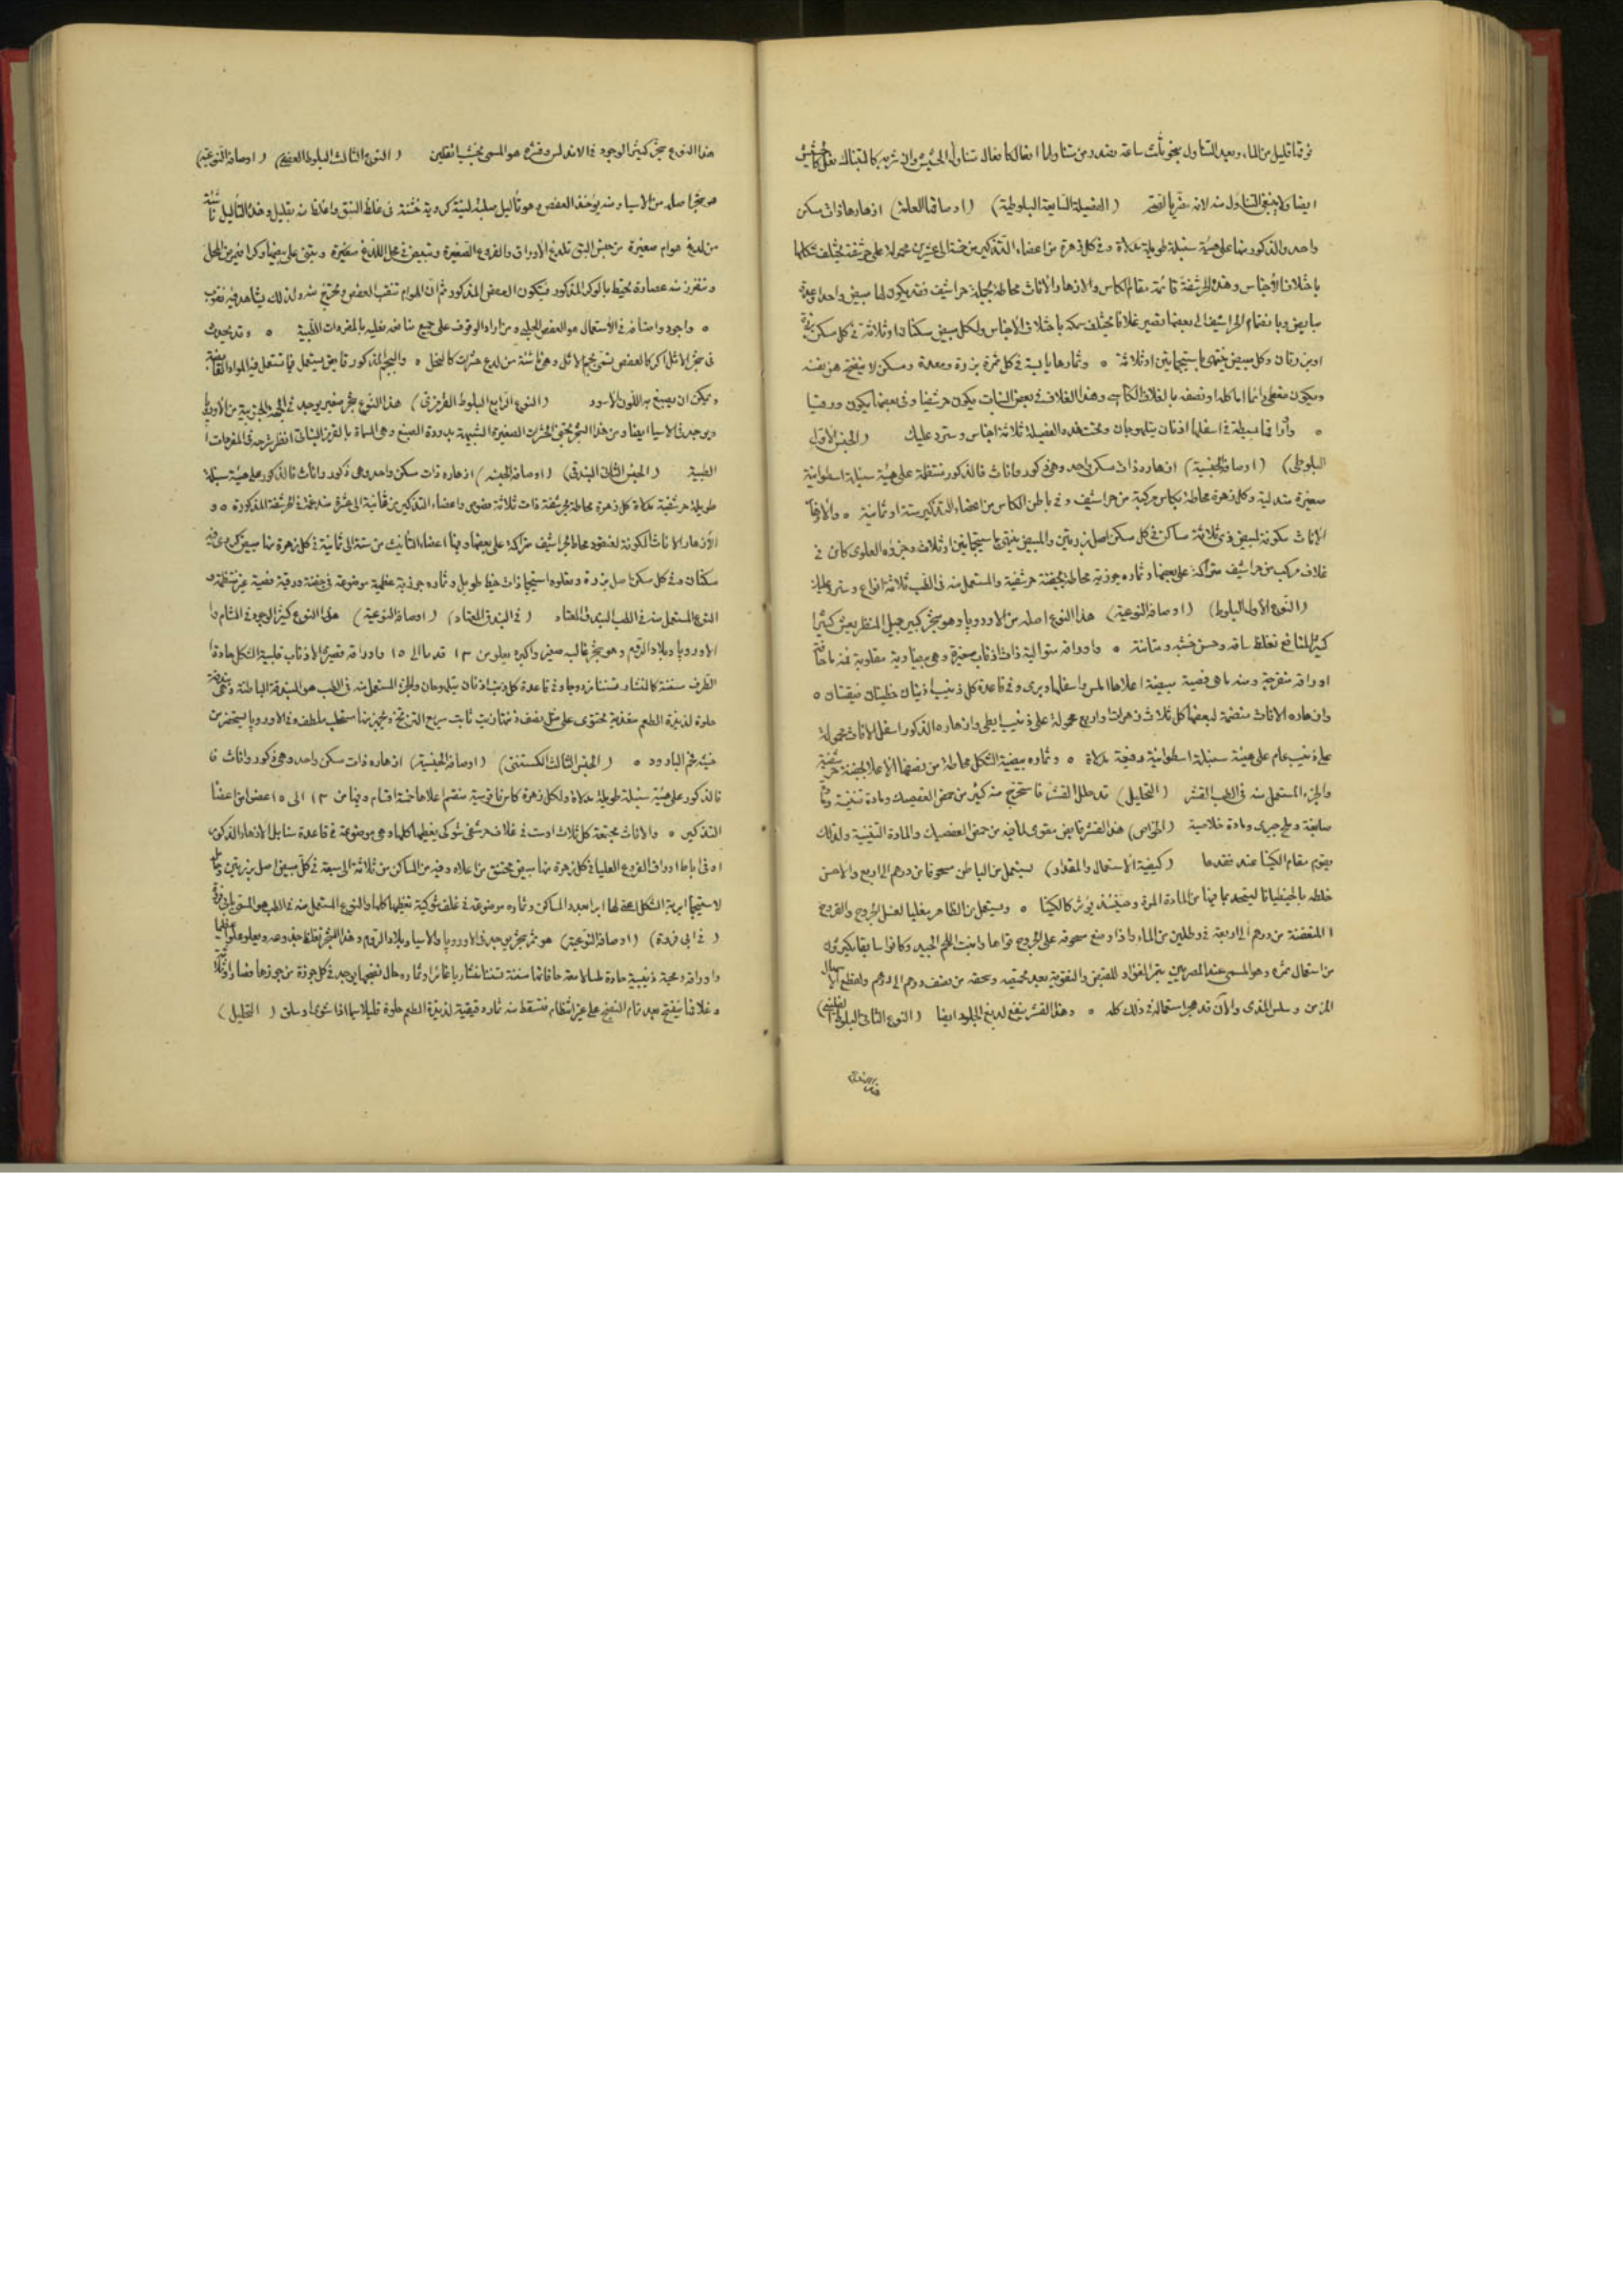 فوقها قليل من الماء وبعد التناول بنحو ثلث ساعة
ايضا ولا ينبغى التناول منه لانه مضر بالفم (الفصيلة السابعة البلوطية) (اوصافها العامة) ازهارها ذات مسكن
واحد والذكور منها على هيئة سنبلة طويلة مدلاة وفى كل زهرة من اعضاء التذكير من خمسة الى عشرين محمولة على حرشفة يختلف شكلها
باختلاف الأجناس وهذه الحرشفة قائمة مقام الكاس والازهار والأناث محاطة بجملة حراشيف فقد يكون لها مبيض واحد او عدة
مبايض وبانضمام الحراشيف الى بعضها تصير غلافا يختلف سمكه باختلاف الأجناس ولكل مبيض مسكنان او ثلاثة فى كل مسكن بزرة
او بزرتان وكل مبيض ينتهى باستيجماتين او ثلاثة ٥ وثمارها يابسة فى كل ثمرة بزرة ومسكن لا ينفتح من نفسه
ويكون مغطى دائما اما كله او نصفه بالغلاف الكاسى وهذا الغلاف فى بعض النباتات يكون حرشفيا وفى بعضها يكون ورقيا
٥ وأوراقها بسيطة فى اسفلها اذنان يتلوحان وتحت هذه الفصيلة ثلاثة اجناس وسترد عليك (الجنس الاول
البلوطى) (اوصافه الجنسية) ازهاره ذات مسكن واحد وهى ذكور واناث فالذكور منتظمة على هيئة سنبلة اسطوانية
صغيرة متدلية وكل زهرة محاطة بكاس مركبة من حراشيف وفى باطن الكاس من اعضاء التذكير ستة او ثمانية ٥ والازهار
الاناث مكونة لمبيض ذى ثلاثة مساكن فى كل مسكن اصل بزرتين والمبيض ينتهى باستيجماتين او ثلاث وجزؤه العلوى كائن فى
غلاف مركب من حراشيف متراكمة على بعضها وثماره جوزية محاطة بجفنة حرشفية والمستعمل منه فى الطب ثلاثة انواع وسترد عليك
(النوع الأول البلوط) (اوصافه النوعية) هذا النوع اصله من الاوروپا وهو شجر كبير جميل المنظر يعيش كثيرا
كثير المنافع لغلظ ساقه وحسن خشبه ومتانته ٥ واوراقه متوالية ذات اذناب صغيرة وهى بيضاوية مقلوبة
اوراقه منفرجة ومنه ما هى فصية مبيضة اعلاها املس واسفلها وبرى وفى قاعدة كل ذنيب اذنيتان خطيتان ضيقتان ٥
وازهاره الاناث منضمة لبعضها كل ثلاث زهرات او اربع محمولة على ذنيب ابطى وازهاره الذكور اسفل الاناث محمولة
على ذنيب عام على هيئة سنبلة اسطوانية رفيعة مدلاة ٥ وثماره بيضية الشكل محاطة من نصفها الاعلا بجفنة حرشفية
والجزء المستعمل منه فى الطب القشر (التحليل) قد حلل القشر فاستخرج منه كثير من حمض العفصيك ومادة تنينية
صابغة وملح جيرى ومادة خلاصية (الخواص) هذا القشر قابض مقوى لما فيه من حمض العفصيك والمادة التنينية ولذلك
يقوم مقام الكينا عند فقدها (كيفية الاستعمال والمقدار) يستعمل من الباطن مسحوقا من درهم الى اربع والاحسن
خلطه بالجنطيانا ليتحد بما فيها من المادة المرة وحينئذ يؤثر كالكينا ٥ ويستعمل من الظاهر مغليا لغسل الجروح والقروح
المتعفنة من درهم الى اربعة فى رطلين من الماء واذا وضع مسحوقه على الجروح قواها وانبت اللحم الجديد وكانوا سابقا يكثرون
من استعمال ثمره وهو المسمى عند المصريين بتمر الفؤاد للقبض والتقوية بعد تحميصه وسحقه من نصف درهم الى درهم ولقطع الاسهال
المزمن وسلس المذى والآن قد هجر استعماله فى ذلك كله ٥ وهذا القشر ينفع لدبغ الجلود ايضا (النوع الثانى البلوط الفلينى)
هذا النوع شجر كثير الوجود فى الاندلس وقشره هو المسمى بخشب الفلين (النوع الثالث البلوط العفصى) (اوصافه النوعية)
هو شجر اصله من الاسيا ومنه يؤخذ العفص وهو تأليل صلبة كروية خشنة فى غلظ النبق واغلظ منه بقليل وهذه التأليل ناشئة
من لدغ هوام صغيرة من جنس البق تلدغ الاوراق والفروع الصغيرة وتبيض فى محل اللدغ
وتنفرز منه عصارة تحيط بالوكر المذكور فيتكون العفص المذكور ثم ان الهوام تثقب العفص وتخرج منه ولذلك يشاهد فيه ثقوب
٥ واجود اصنافه فى الاستعمال هو العفص الحلبى ومن اراد الوقوف على جميع منافعه فعليه بالمفردات الطبية ٥ وقد يحدث
فى شجر الاثل اكر كالعفص تسمى بحجم الاثل وهى ناشئة من لدغ حشرات كالنحل ٥
ويمكن ان يصبغ به اللون الاسود (النوع الرابع البلوط القرمزى) هذا النوع شجر صغير يوجد فى الجهة الجنوبية من الأوروپا
ويوجد فى الاسيا ايضا ومن هذا الشجر تجنى الحشرات الصغيرة الشبيهة بدودة الصبغ وهى المسماة بالقرمز النباتى انظر شرحه فى المفردات
الطبية (الجنس الثانى البندقى) (اوصافه الجنسية) ازهاره ذات مسكن واحد وهى ذكور واناث فالذكور على هيئة سنبلة
طويلة حرشفية مدلاة كل زهرة محاطة بحرشفة ذات ثلاثة فصوص واعضاء التذكير من ثمانية الى عشرة مندغمة فى الحرشفة المذكورة ٥ و
الأزهار الاناث مكونة لعنقود محاط بحراشيف متراكمة على بعضها وفيها اعضاء التانيث من ستة الى ثمانية فى كل زهرة منها مبيض كروى فيه
مسكنان وفى كل مسكن اصل بزرة ويعلوه استيجما ذات خيط طويل وثماره جوزية عظمية موضوعة فى جفنة ورقية فصية غير منتظمة و
النوع المستعمل منه فى الطب البندق المعتاد (فى البندق المعتاد) (اوصافه النوعية) هذا النوع كثير الوجود فى الشام وا
الاوروپا وبلاد الروم وهو شجر غالبه صغير واكبره يعلو من ١٢ قدما الى ١٥ واوراقه قصيرة الاذناب قلبية الشكل حادة
الطرف مسننة كالمنشار تسننا مزدوجا وفى قاعدة كل ذنيب اذنان يتلوحان والجزء المستعمل منه فى الطب هو البندقة الباطنة
حلوة لذيذة الطعم مغذية تحتوى على مثل نصف زنتها زيت ثابت سريع التزنخ ويجهز منها مستحلب ملطف وفى الاوروپا يستحضر من
خشبه فحم البارود ٥ (الجنس الثالث الكستنى) (اوصافه الجنسية) ازهاره ذات مسكن واحد وهى ذكور واناث
فالذكور على هيئة سنبلة طويلة مدلاة ولكل زهرة كاس ناقوسية منقسم اعلاها خمسة اقسام وفيها من ١٢ الى ١٥ عضوا من اعضاء
التذكير ٥ والاناث مجتمعة كل ثلاث او ست فى غلاف حرشفى شوكى يغطيها كلها وهى موضوعة فى قاعدة سنابل الازهار الذكور
او فى اباط اوراق الفروع العليا فى كل زهرة منها مبيض مختنق من اعلاه وفيه من المساكن من ثلاثة الى سبعة فى كل مبيض اصل بزرتين
لاستيجما ابرية الشكل بعدد المساكن وثماره موضوعة فى غلف شوكية تغطيها كلها والنوع المستعمل منه فى الطب هو المسمى بابى فروة
(فى ابى فروة) (اوصافه النوعية) هو ثمر شجر يوجد فى الاوروپا والاسيا وبلاد الروم وهذا الشجر
واوراقه رمحية ذنيبية حادة ملساء لامعة حافاتها مسننة تسننا منشاريا غائرا وثماره حال نضجها يوجد فى كل جوزة من جوزها
وغلافها ينفتح بعد تمام النضج على غير انتظام فتسقط منه ثمار دقيقية لذيذة الطعم حلوة قليلا سيما اذا شوى او سلق (التحليل)